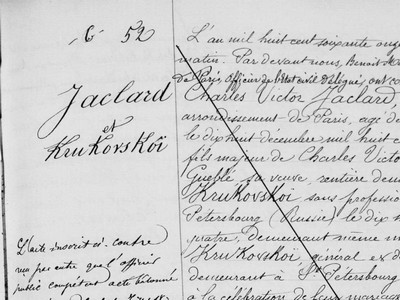 N° 52
Jaclard
et
Krukovskoï
L'acte inscrit ci-contre
n'a pas entre que l'officier
public compétent acte bâtonné
L'an mil huit cent soixante onze
matin. Par devant nous, Benoît
de Paris, Officier de l'Etat civil délégué, ont co
Charles Victor Jaclard,
arrondissement de Paris, âgé de
le dix huit décembre mil huit c
fils majeur de Charles Victo
Gueblé sa veuve, rentière dem
Krukovskoï sans professio
Pétersbourg (Russie) le dix h
quatre, demeurant même m
Krukovskoï, général en
demeurant à St Pétersbourg
à la célébration de leur mariag